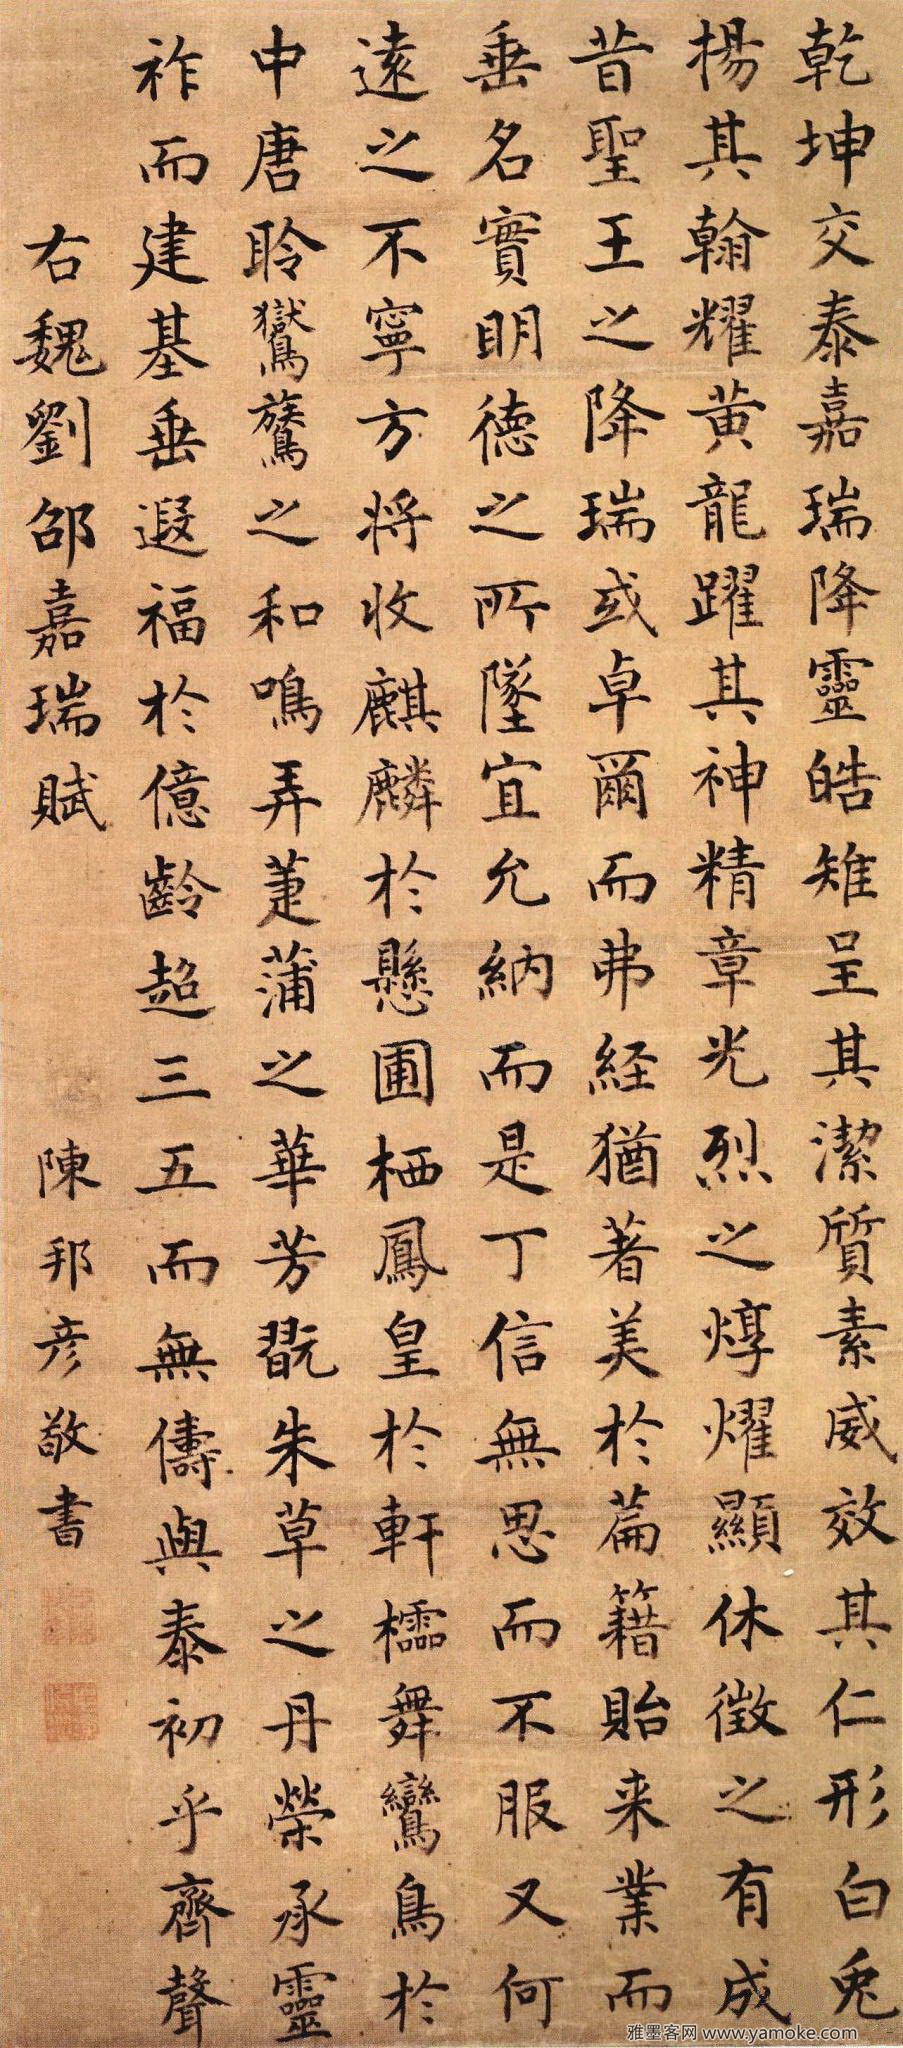 乾坤交泰嘉瑞降靈皓雉呈其潔質素威效其仁形白兎
揚其翰耀黃龍躍其神精章光烈之焞燿顯休徵之有成
昔聖王之降瑞或卓爾而弗経猶著美於篇籍貽来業而
垂名實明德之所墜宜允納而是丁信無思而不服又何
遠之不寧方將收麒麟於懸圃栖鳳皇於軒櫺舞鸞鳥於
中唐聆鸑鷟之和鳴弄萐蒲之華芳翫朱草之丹榮承靈
祚而建基垂遐福於億齡超三五而無儔與泰初乎齊聲
右魏劉邵嘉瑞賦
陳邦彦敬書
雅墨客网 www.yamoke.com